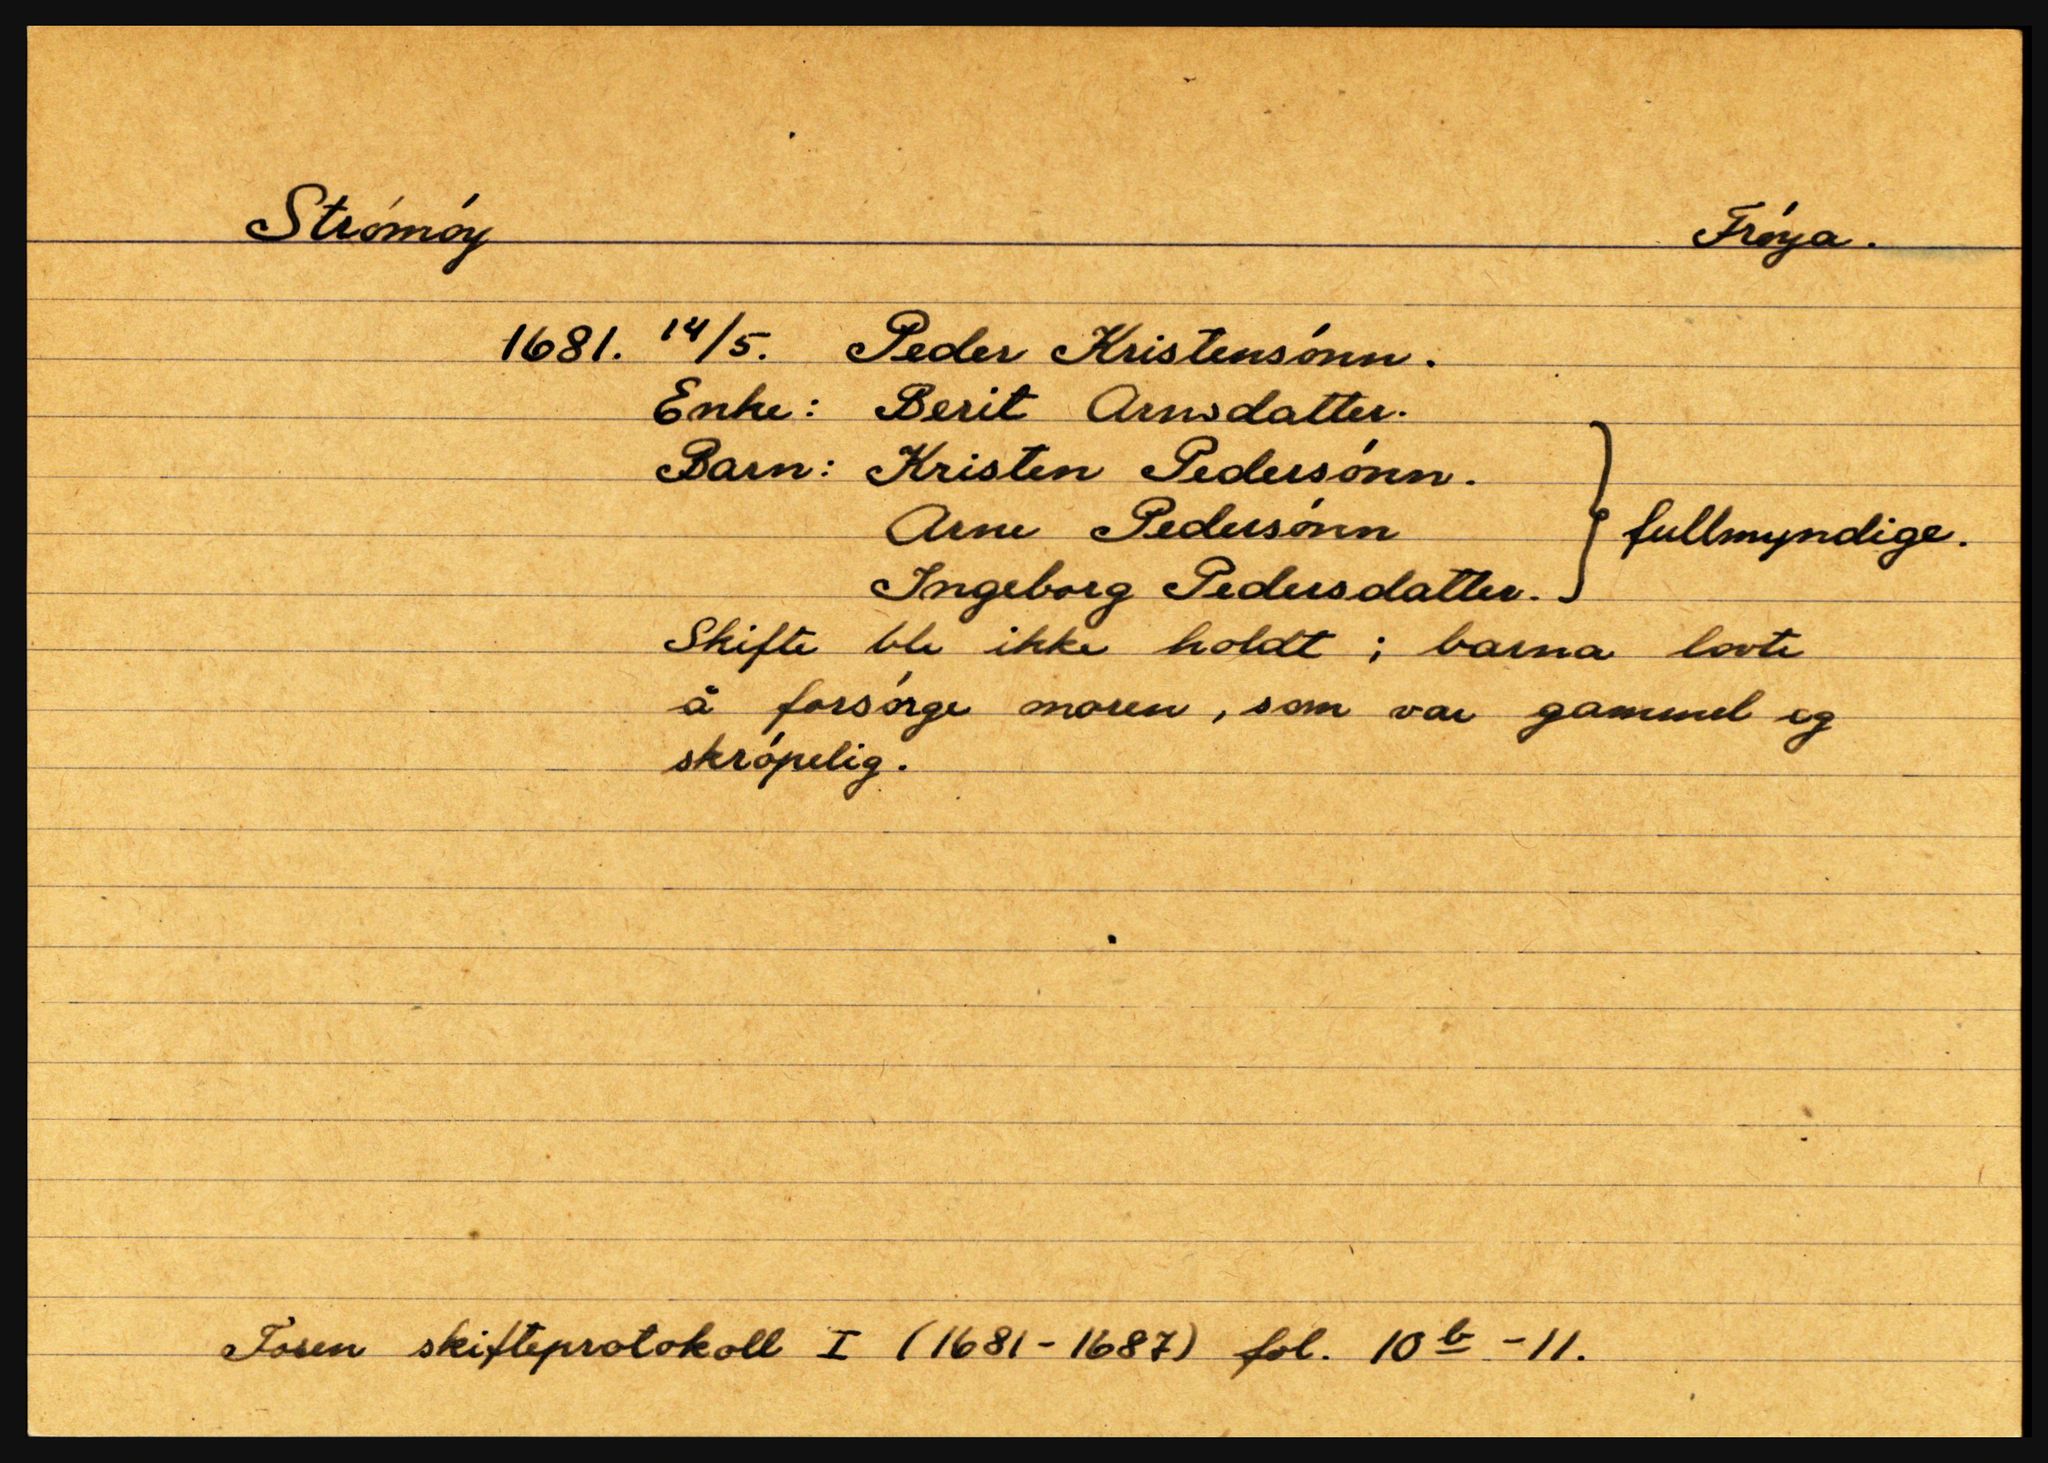 Strómóy Fróya.
1681. 14/5. Peder Kristensónn.
Enke: Berit Arnsdatter.
Barn: Kristen Pedersónn.
Arne Pedersónn } fullmyndige.
Ingeborg Pedersdatter.
Skifte ble ikke holdt ; barna lovte
å forsórge moren, som var gammel og
skrópelig.
Fosen skifteprotokoll I (1681-1687) fol. 10 b -11.